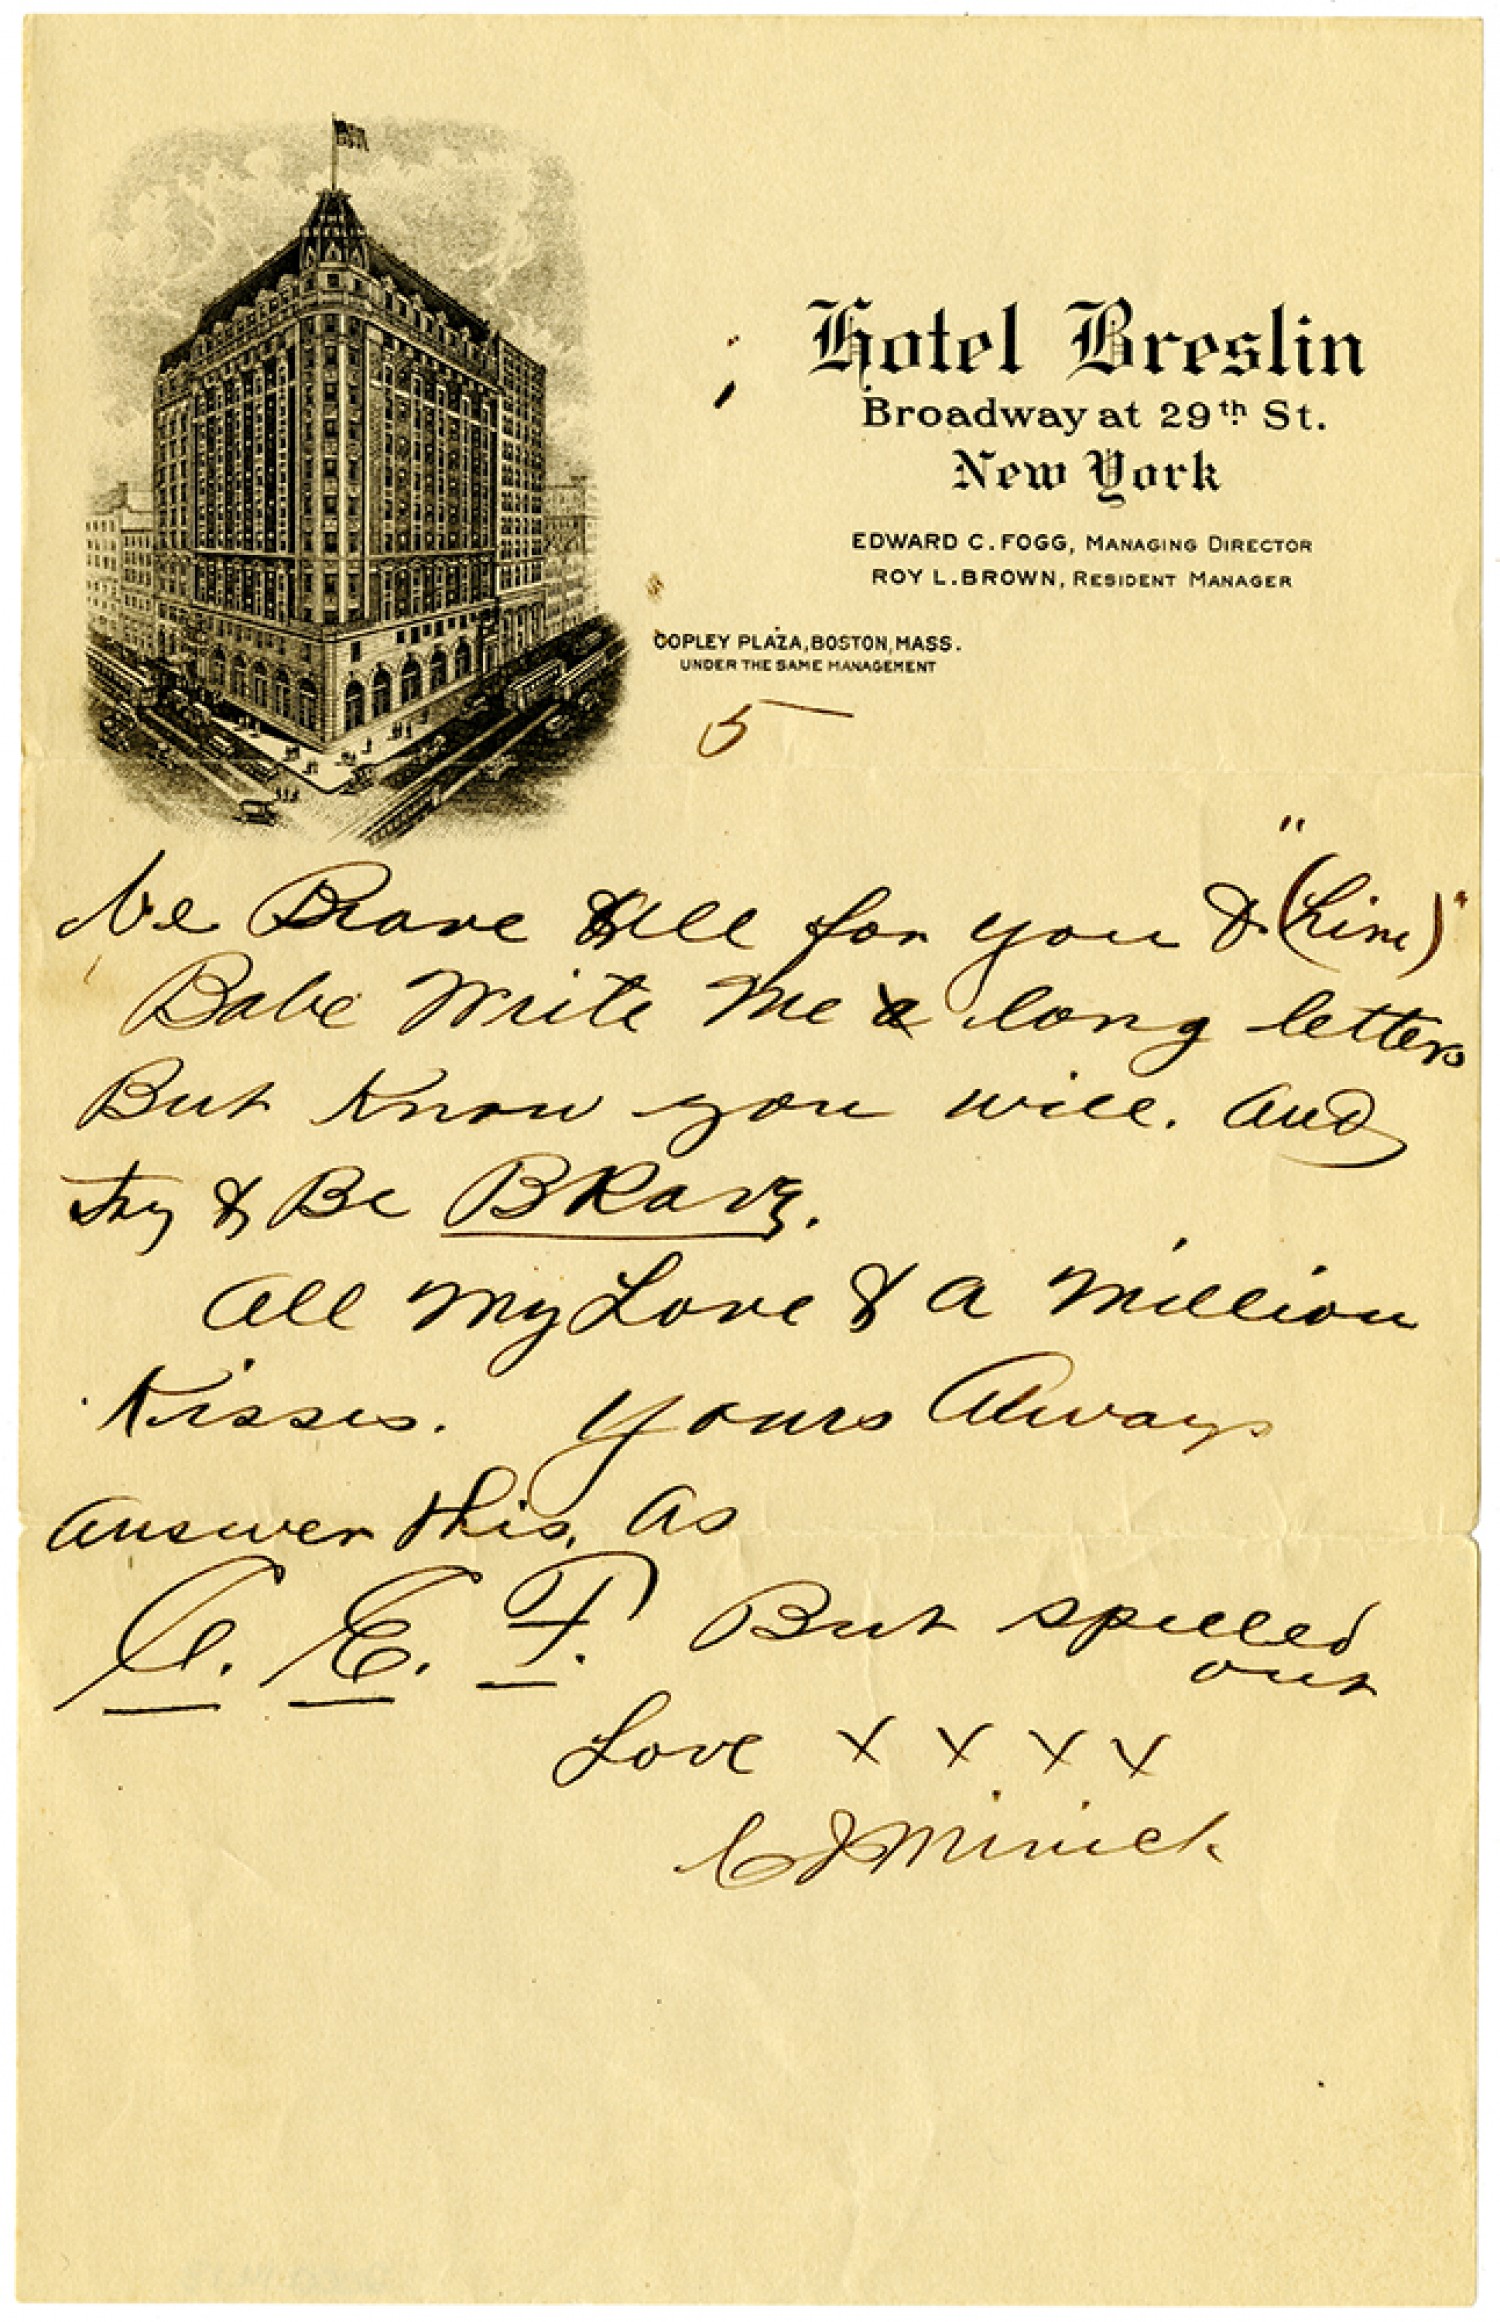 Hotel Breslin
Broadway at 29th St.
New York
EDWARD C. FOGG, MANAGING DIRECTOR
ROY L. BROWN, RESIDENT MANAGER
COPLEY PLAZA, BOSTON, MASS.
UNDER THE SAME MANAGEMENT
5
Be Brave All for you & "(him)"
Babe Write Me a long letters
But Know you will. And
try & Be BRave.
All My Love & a Million
Kisses. Yours Always
Answer this, as
C. E. T. But spelled
out
Love x x x x
C J Minick